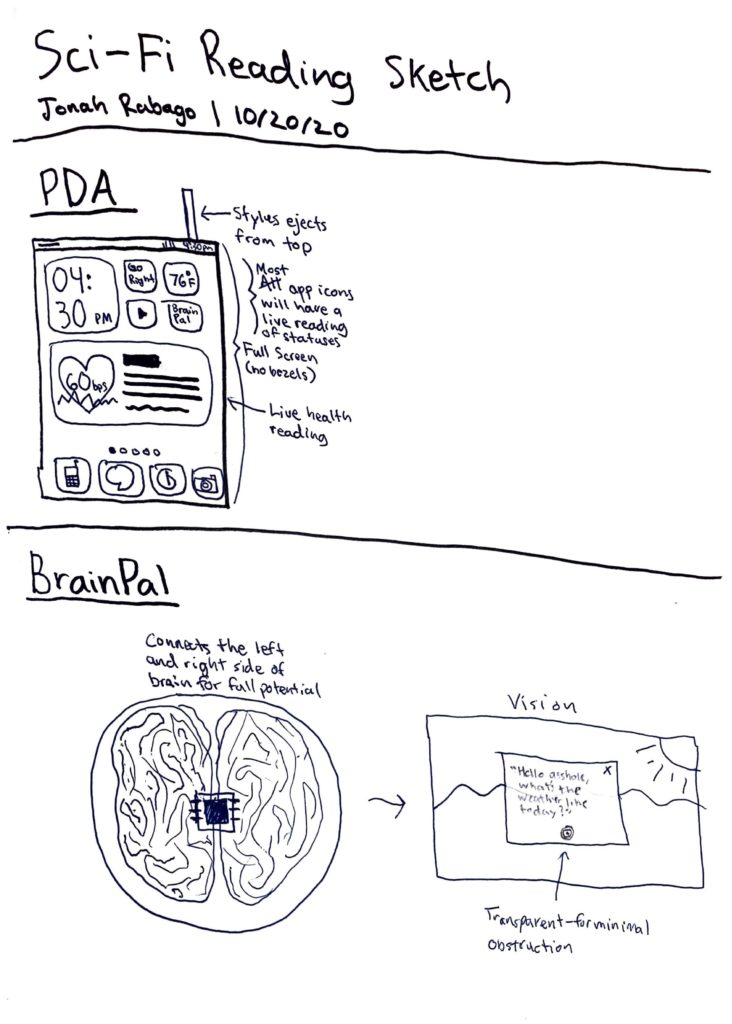 Sci-Fi Reading Sketch
Jonah Rabago | 10/20/20
PDA
Stylus ejects
from top
4:30pm
04:
30 PM
Go
Right
76°F
Brain
Pal
60bps
Most
All app icons
will have a
live reading
of statuses
Full Screen
(no bezels)
Live health
reading
BrainPal
Connects the left
and right side of
brain for full potential
Vision
X
"Hello asshole,
what's the
weather like
today?"
Transparent-for minimal
obstruction